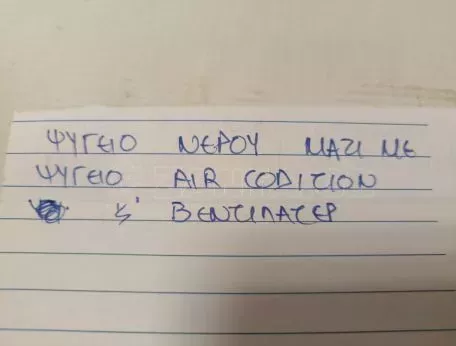 ΨΥΓΕΙΟ ΝΕΡΟΥ ΜΑΖΙ ΜΕ
ΨΥΓΕΙΟ AIR CODITION
ϗ' ΒΕΝΤΙΛΑΤΕΡ